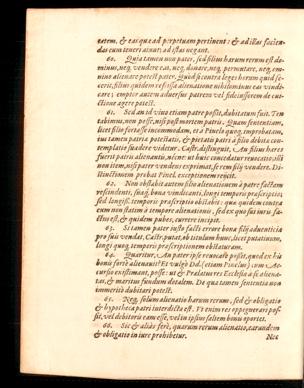 eatem, & eas quæ ad perpetuam pertinent: & ad illas facien-
das eum teneri ainnt; ad istas negant.
60. Quia tamen non pater, sed filius harum rerum est do-
minus, neq; vendere eas, neq; donare, neq; permutare, neq; om-
nino alienare potest pater. Quòd si contra leges horum quid fe-
cerit, filius quidem rescissa alienatione nihilominus eas vindi-
care; emptor autem aduersus patrem vel fideiussorem de eui-
ctione agere potest.
61. Sed an id viuo etiam patre possit, dubitatum fuit. Ten-
tabimus, non posse, nisi post mortem patris. Quam sententiam,
licet filio fortasse incommodam, et à Pinelo quoq; improbatam,
ius tamen patria potestatis, & pietatis patri à filio debita con-
templatio suadere videtur. Castr. distinguit, An filius hares
fuerit patri alienantis, nécne: ut hunc concedatur reuocatio, illi
non item, nisi pater vendens exprimat, se rem filij vendere. Di-
stinctionem probat Pinel. exceptionem reijcit.
62. Non obstabit autem filio alienationem à patre factam
rescindenti, suaq; bona vindicanti, longi temporis praescriptio;
sed longiss. temporis praescriptio obstabit: qua quidem contra
eum non statim à tempore alienationis, sed ex quo sui iuris fa-
ctus est, & quidem pubes, currere incipit.
63. Si tamen pater iusto facti errore bona filij aduentitia
pro suis vendat, Castr. putat, ob titulum hunc, licet putatiuum,
longi quoq; temporis praescriptionem obituram.
64. Quaritur, An pater ipse reuocare possit, quod ex his
bonis fortè alienauit? Et vulgò Dd. (etiam Pinelus) cum Ac-
cursio existimant, posse: ut & Praelatus res Ecclesia à se aliena-
tas, & maritus fundum dotalem. De qua tamen sententia non
immeritò dubitari potest.
65. Neq; solum alienatio harum rerum, sed & obligatio
& hypotheca patri interdicta est. Et enim res oppugnerari pos-
sit, vel debitoris eam esse, vel in ipsius saltem bonis oportet.
66. Sic & aliàs ferè, quarum rerum alienatio, earundem
& obligatio in iure prohibetur.
Nec